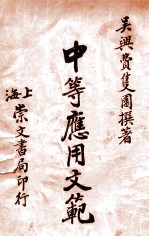 吳興費隻園撰著
中等應用文範
上海崇文書局印行